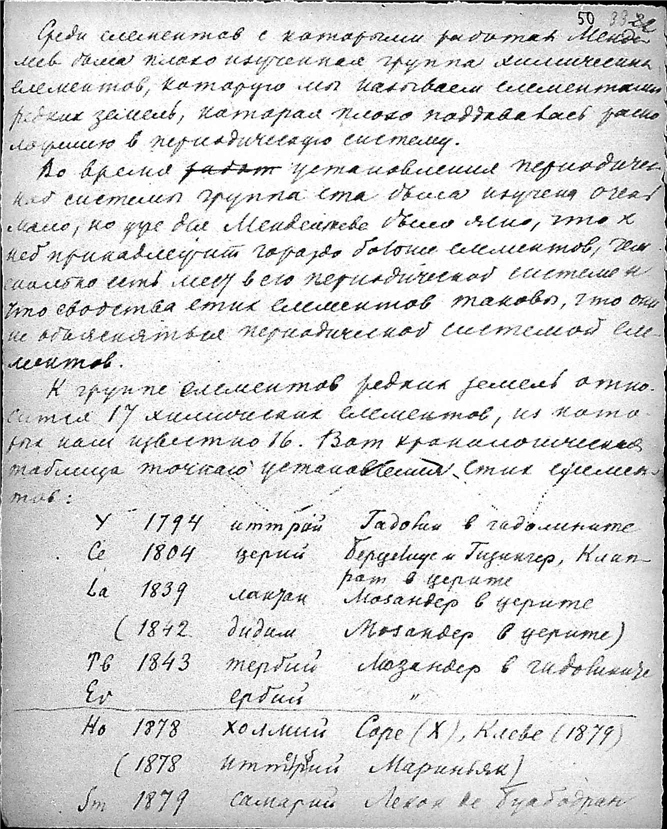 50 33 22
Среди елементов с которыми работал Менде-
леев была плохо изученная группа химических
елементов, которую мы называем елементами
редких земель, которая плохо поддавалась распо
ложению в периодическую систему.
Во время работ установления периодичес-
кой системы группа ета была изучена очень
мало, но уже для Менделеева было ясно, что к
ней принадлежит гораздо больше елементов, чем
сколько есть мест в его периодической системе и
что свойства етих елементов таковы, что они
не объясняться периодической системой еле-
ментов.
К группе елементов редких земель отно-
сится 17 химических елементов, из кото-
рых нам известно 16. Вот хронологическая
таблица точного установления етих елемен-
тов:
Y 1794 иттрий Гадолин в гадолините
Ce 1804 церий Берцелиус и Гизингер, Клап-
рот в церите
La 1839 лантан Мозандер в церите
(1842 дидим Мозандер в церите)
Тв 1843 тербий Мозандер в гадолините
Er ербий "
Ho 1878 холмий Соре (X), Клеве (1879)
(1878 Мариньяк)
Sm 1879 самарий Лекок де Буабодран